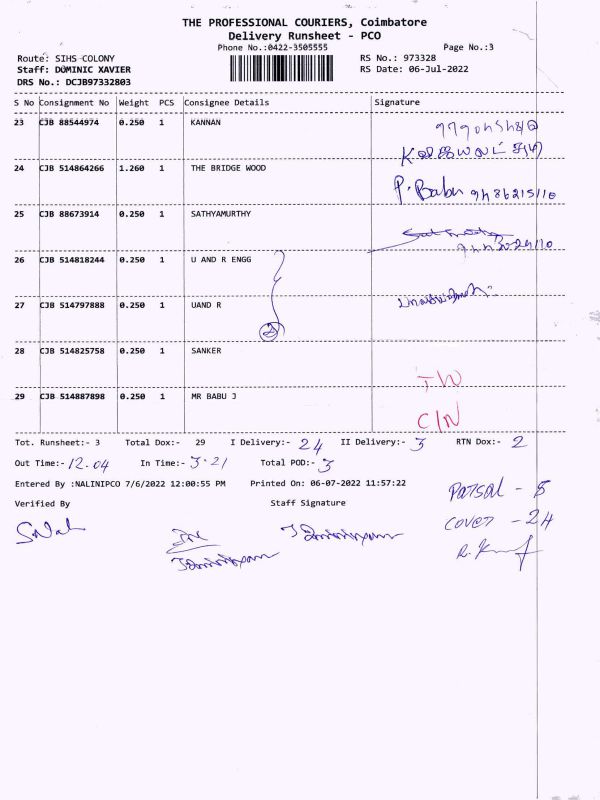 THE PROFESSIONAL COURIERS, Coimbatore
Delivery Runsheet - PCO
Phone No.:0422-3505555 Page No.:3
Route: SIHS COLONY RS No.: 973328
Staff: DOMINIC XAVIER RS Date: 06-Jul-2022
DRS No.: DCJB97332803
S No Consignment No Weight PCS Consignee Details Signature
23 CJB 88544974 0.250 1 KANNAN
24 CJB 514864266 1.260 1 THE BRIDGE WOOD
P. Babu 9486215110
25 CJB 88673914 0.250 1 SATHYAMURTHY
26 CJB 514818244 0.250 1 U AND R ENGG
27 CJB 514797888 0.250 1 UAND R
2
28 CJB 514825758 0.250 1 SANKER
29 CJB 514887898 0.250 1 MR BABU J
C/N
Tot. Runsheet:- 3 Total Dox:- 29 I Delivery:- 24 II Delivery:- 3 RTN Dox:- 2
Out Time:- 12.04 In Time:- 3.21 Total POD:- 3
Entered By :NALINIPCO 7/6/2022 12:00:55 PM Printed On: 06-07-2022 11:57:22
Parsal - 5
Verified By Staff Signature
cover - 24